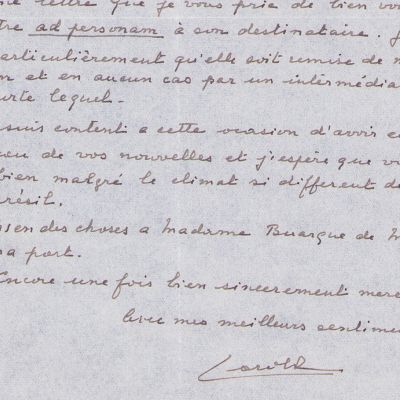 lettre que je vous prie de bien vou
tre ad personam à son destinataire. J
articulièrement qu'elle soit remise de m
n et en aucun cas par un intermédia
orte lequel.
suis content a cette ocasion d'avoir e
eu de vos nouvelles et j'espère que v
bien malgré le climat si different d
résil.
ien des choses a Madame Buarque de M
a part.
Encore une fois bien sincerement merc
Avec mes meilleurs sentime